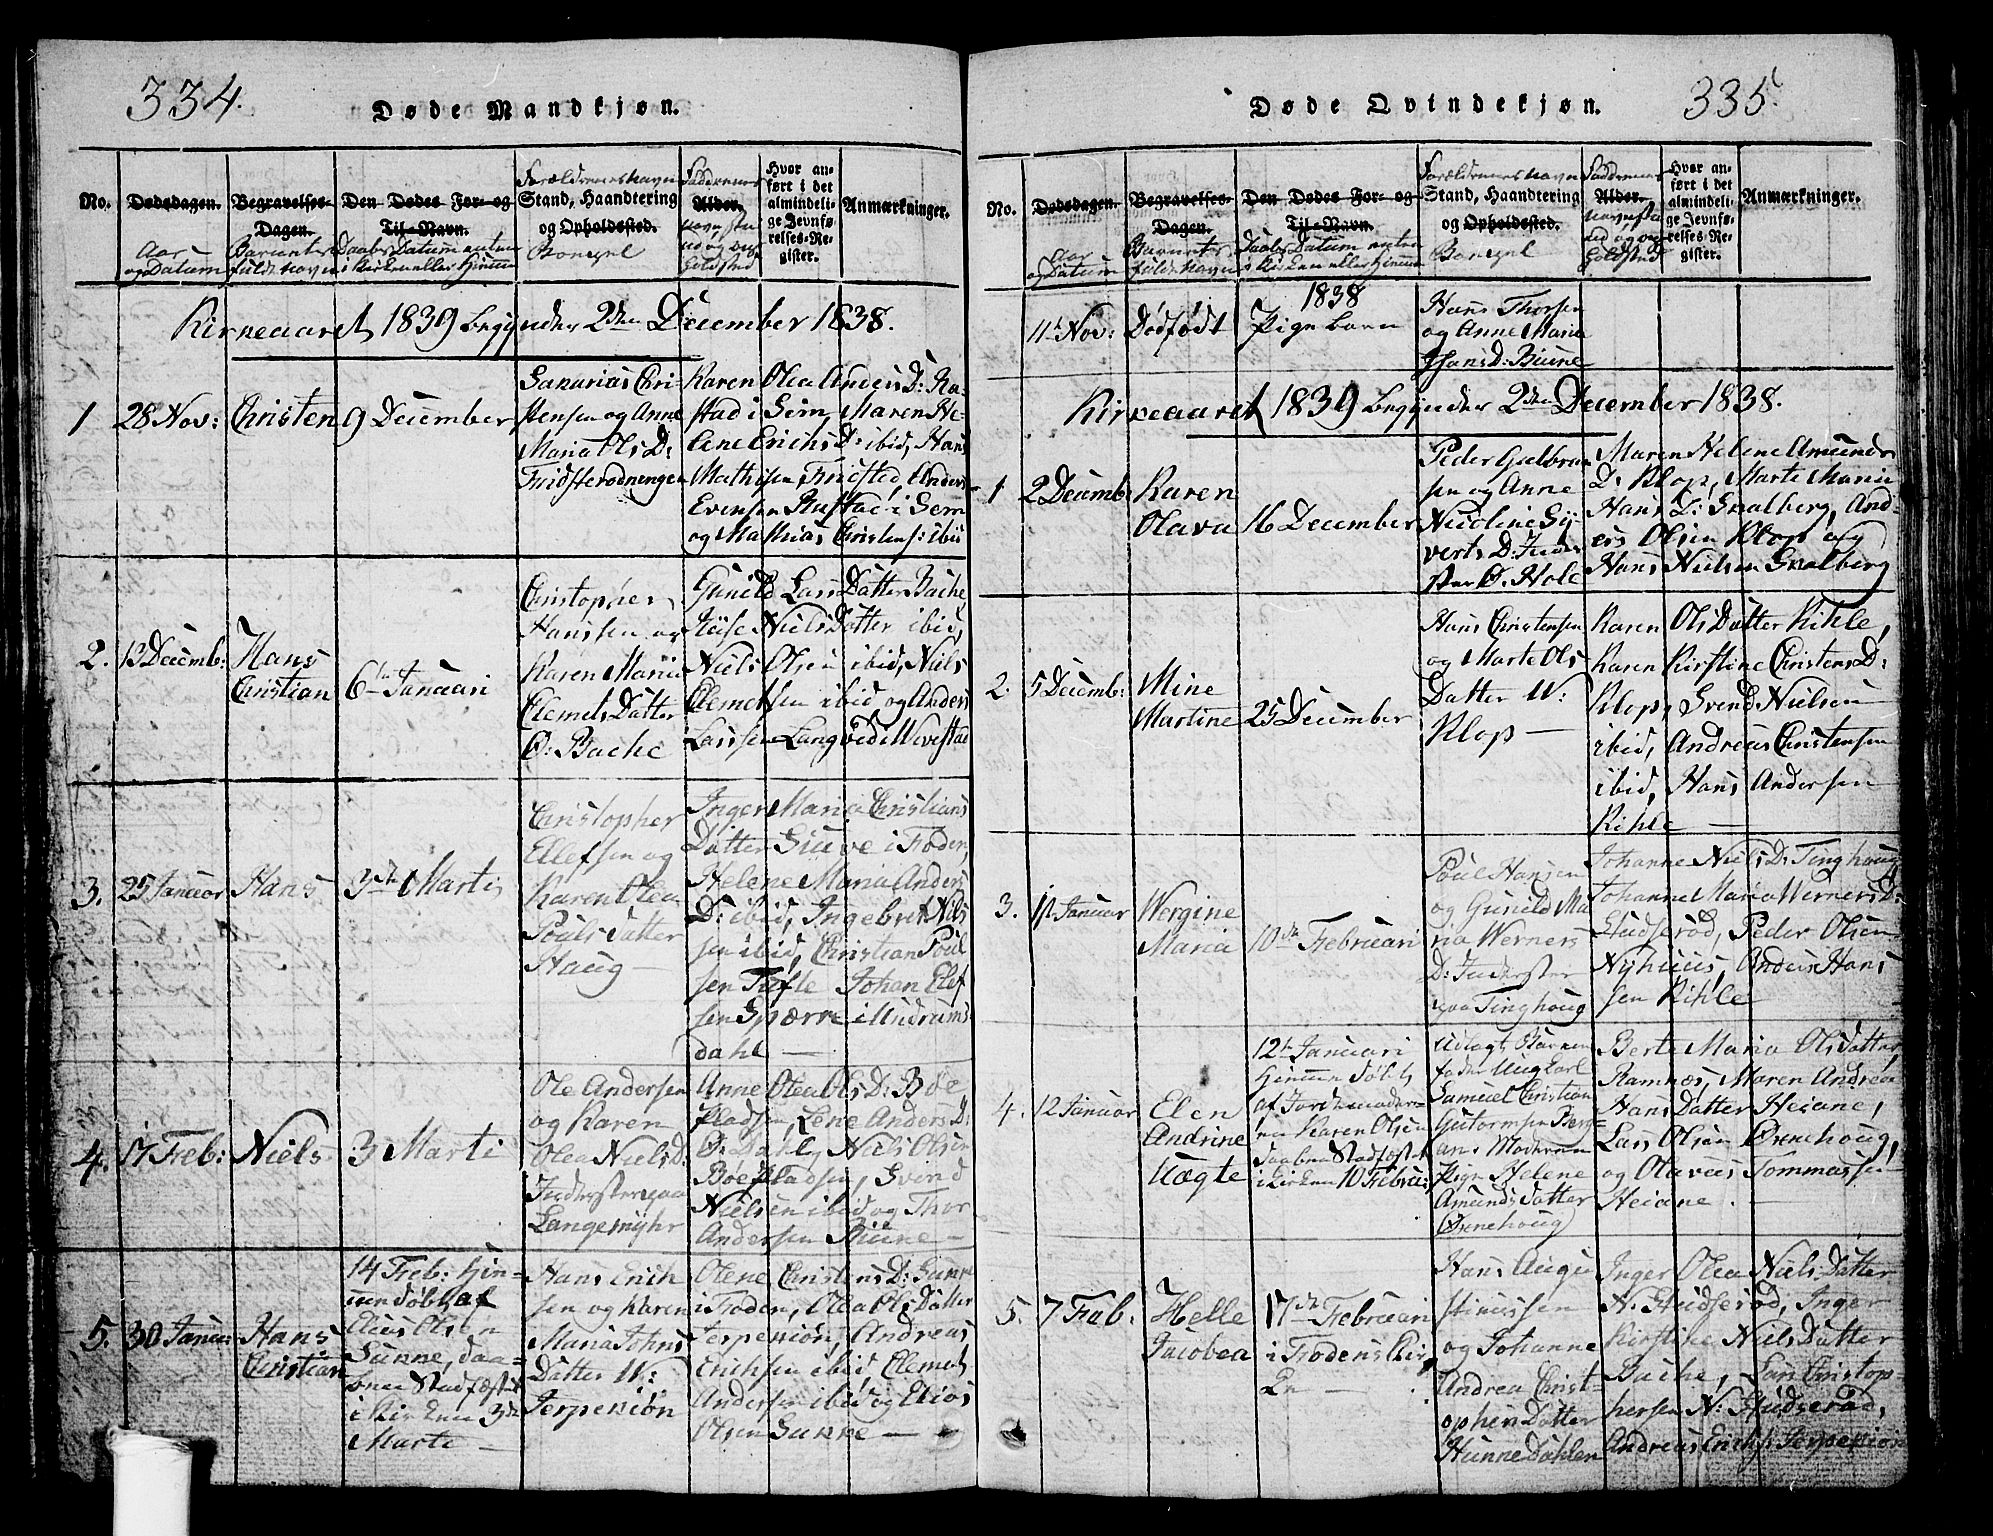 334.
Døde Mandkjøn.
No.
Dødsdagen.
Aar
og Datum
Begravelses-
Dagen.
Barnets
fulde Navn
Den Dødes For- og
Til-Navn.
Daabs Datum enten
i Kirken eller Hiemme
Forældrenes Navn
Stand, Haandtering
og Opholdssted.
Boepæl
Faddrenes
Alder.
Navn, Sta
nd og Op
holdsted
Hvor an-
ført i det
almindeli-
ge Jevnfø-
relses-Re-
gister.
Anmærkninger.
Kirkeaaret 1839 begynder 2den December 1838.
1
28 Nov:
Christen
9 December
Sakarias Chri-
stensen og Anne
Maria Ols D:
Fridsterødningen
Karen Olea Anders D: Ra-
stad i Sem, Maren He-
lene Erichs D: ibid, Hans
Mathisen Fridsted, Anders
Evensen Rustad i Sem
og Mathias Christens: ibid
2.
13 Decemb:
Hans
Christian
6te Januari
Christopher
Hanssen og
Karen Maria
Clemets Datter
Ø: Bache
Gunild Lars Datter Bache
Niels Datter ibid,
Niels Olsen ibid, Niels
Clemetsen ibid og Anders
Larssen Langvedt Wivestad
3.
25 Januar
Hans
3die Marti
Christopher
Ellefsen og
Karen Olea
Pouls Datter
Haug
Inger Maria Christians
Datter Giuve i Froden,
Helene Maria Anders
D: ibid, Ingebret Niels
sen ibid, Christian Poul
sen Tufte Johan Elef
sen Sparre i Undrums
dahl
4.
17 Feb:
Niels
3 Marti
Ole Andersen
og Karen
Olea Niels D:
Inderster paa
Langemyhr
Anne Olea Ols D: Böe
pladsen, Lene Anders D:
Ø: Dahl, Niels Olsen
Böepladsen, Svend
Nielsen ibid og Thor
Andersen Biune
5.
30 Januar
Hans
Christian
14 Feb: hie-
mme Döbt af
Elias Olsen
Sunne, daa-
ben Stadfæstet
i Kirken 3die
Marti
Hans Erich
sen og Karen
Maria Johns
Datter W:
Jerpekiön
Olene Christens D: Sunne
i Froden, Olea Ols Datter
Jerpekiön, Andreas
Erichsen ibid, Clemet
Andersen ibid og Elias
Olsen Sunne
Døde Qvindekjøn.
335.
No.
Dødsdagen.
Aar
og Datum
Begravelses-
Dagen.
Barnets
fulde Navn
Den Dødes For- og
Til-Navn.
Daabs Datum enten
i Kirken eller Hiemme
Forældrenes Navn
Stand, Haandtering
og Opholdssted.
Boepæl
Faddrenes
Alder.
Navn, Sta
nd og Op
holdsted
Hvor an-
ført i det
almindeli-
ge Jevnfø-
relses-Re-
gister.
Anmærkninger.
11te Nov:
Dødfødt
1838
Pigebarn
Hans Thorsen
og Anne Maria
Hans D: Biune
Kirkeaaret 1839 begynder 2den December 1838.
1
2 Decemb:
Karen
Olava
16 December
Peder Gulbran
sen og Anne
Nicoline Sy-
verts D: Inder
ster Ø. Hole
Maren Helene Amunds
D: Klop, Marte Maria
Hans D: Snalberg, And-
ers Olsen Klop og
Hans Nielsen Snalberg
2.
5 Decemb:
Mine
Martine
25 December
Hans Christensen
og Marte Ols
Datter W:
Klop
Karen Ols Datter Kihle,
Karen Kirstine Christens D:
Klop, Svend Nielsen
ibid, Andreas Christensen
ibid, Hans Andersen
Kihle
3.
Januar
Wergine
Maria
10de Februari
Poul Hansen
og Gunild Ma
ria Werners
D: Inderster
paa Tinghoug
Johanne Niels D: Tinghoug
Johanne Maria Werners D:
Hudseröd, Peder Olsen
Nyhuus, Anders Hans
sen Kihle
4.
12 Januar
Elen
Andrine
Uægte
12te Januari
Hiemme döbt
af Jordemoder-
en Karen Olsen
daaben Stadfæstet
i Kirken 10 Februa:
Udlagt Barne
fader Ung Karl
Samuel Christian
Gutormsen Ber-
an: Moderen
Pige Helene
Amunds Datter
Ørnehoug
Berte Maria Ols Datter
Ramnæs, Maren Andrea
Hans Datter Heiane,
Lars Olsen Ørnehoug,
og Olavus Tommassen
Heiane
5.
7 Feb:
Helle
Jacobea
17de Februari
i Frodens Kir
ke
Hans Augu
stinussen
og Johanne
Andrea Christ-
ophers Datter
Hunne Dahlen
Inger Olea Niels Datter
N: Hudseröd, Inger
Kirstine Niels Datter
Bache, Lars Christop
hersen N: Hudseröd,
Andreas Erichs: Jerpekiön